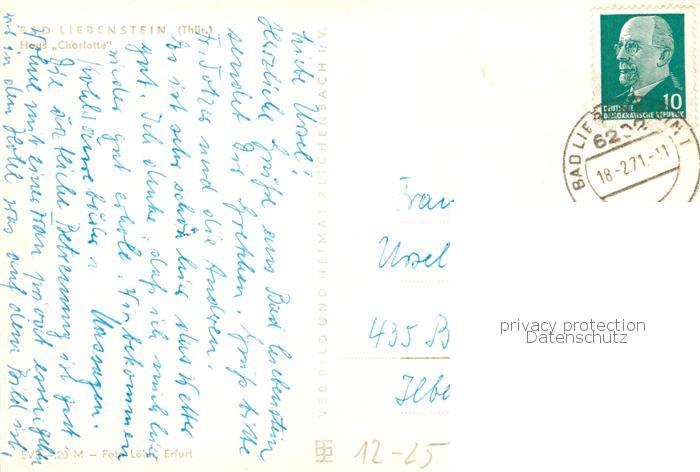 BAD LIEBENSTEIN (Thür.)
Haus „Charlotte"
Liebe Ursel!
Herzliche Grüße aus Bad Liebenstein
sendet Dir Gretchen. Grüß bitte
und die Anderen.
Es ist sehr schön hier das Wetter
gut. Ich denke daß ich mich hier
wieder gut erhole. Wir bekommen
Massagen.
Die ärztliche Betreuung ist gut.
Wohne mit einer Frau
wir in dem Hotel was auf dem Bild ist.
EVP 0,20 M – Foto Löhr, Erfurt
VEB BILD UND HEIMAT REICHENBACH i. V.
DEUTSCHE
DEMOKRATISCHE REPUBLIK
10
BAD LIEBENSTEIN 1
6202
18-2.71-11
Frau
Ursel
435 B
Ilbe
12-25
privacy protection
Datenschutz